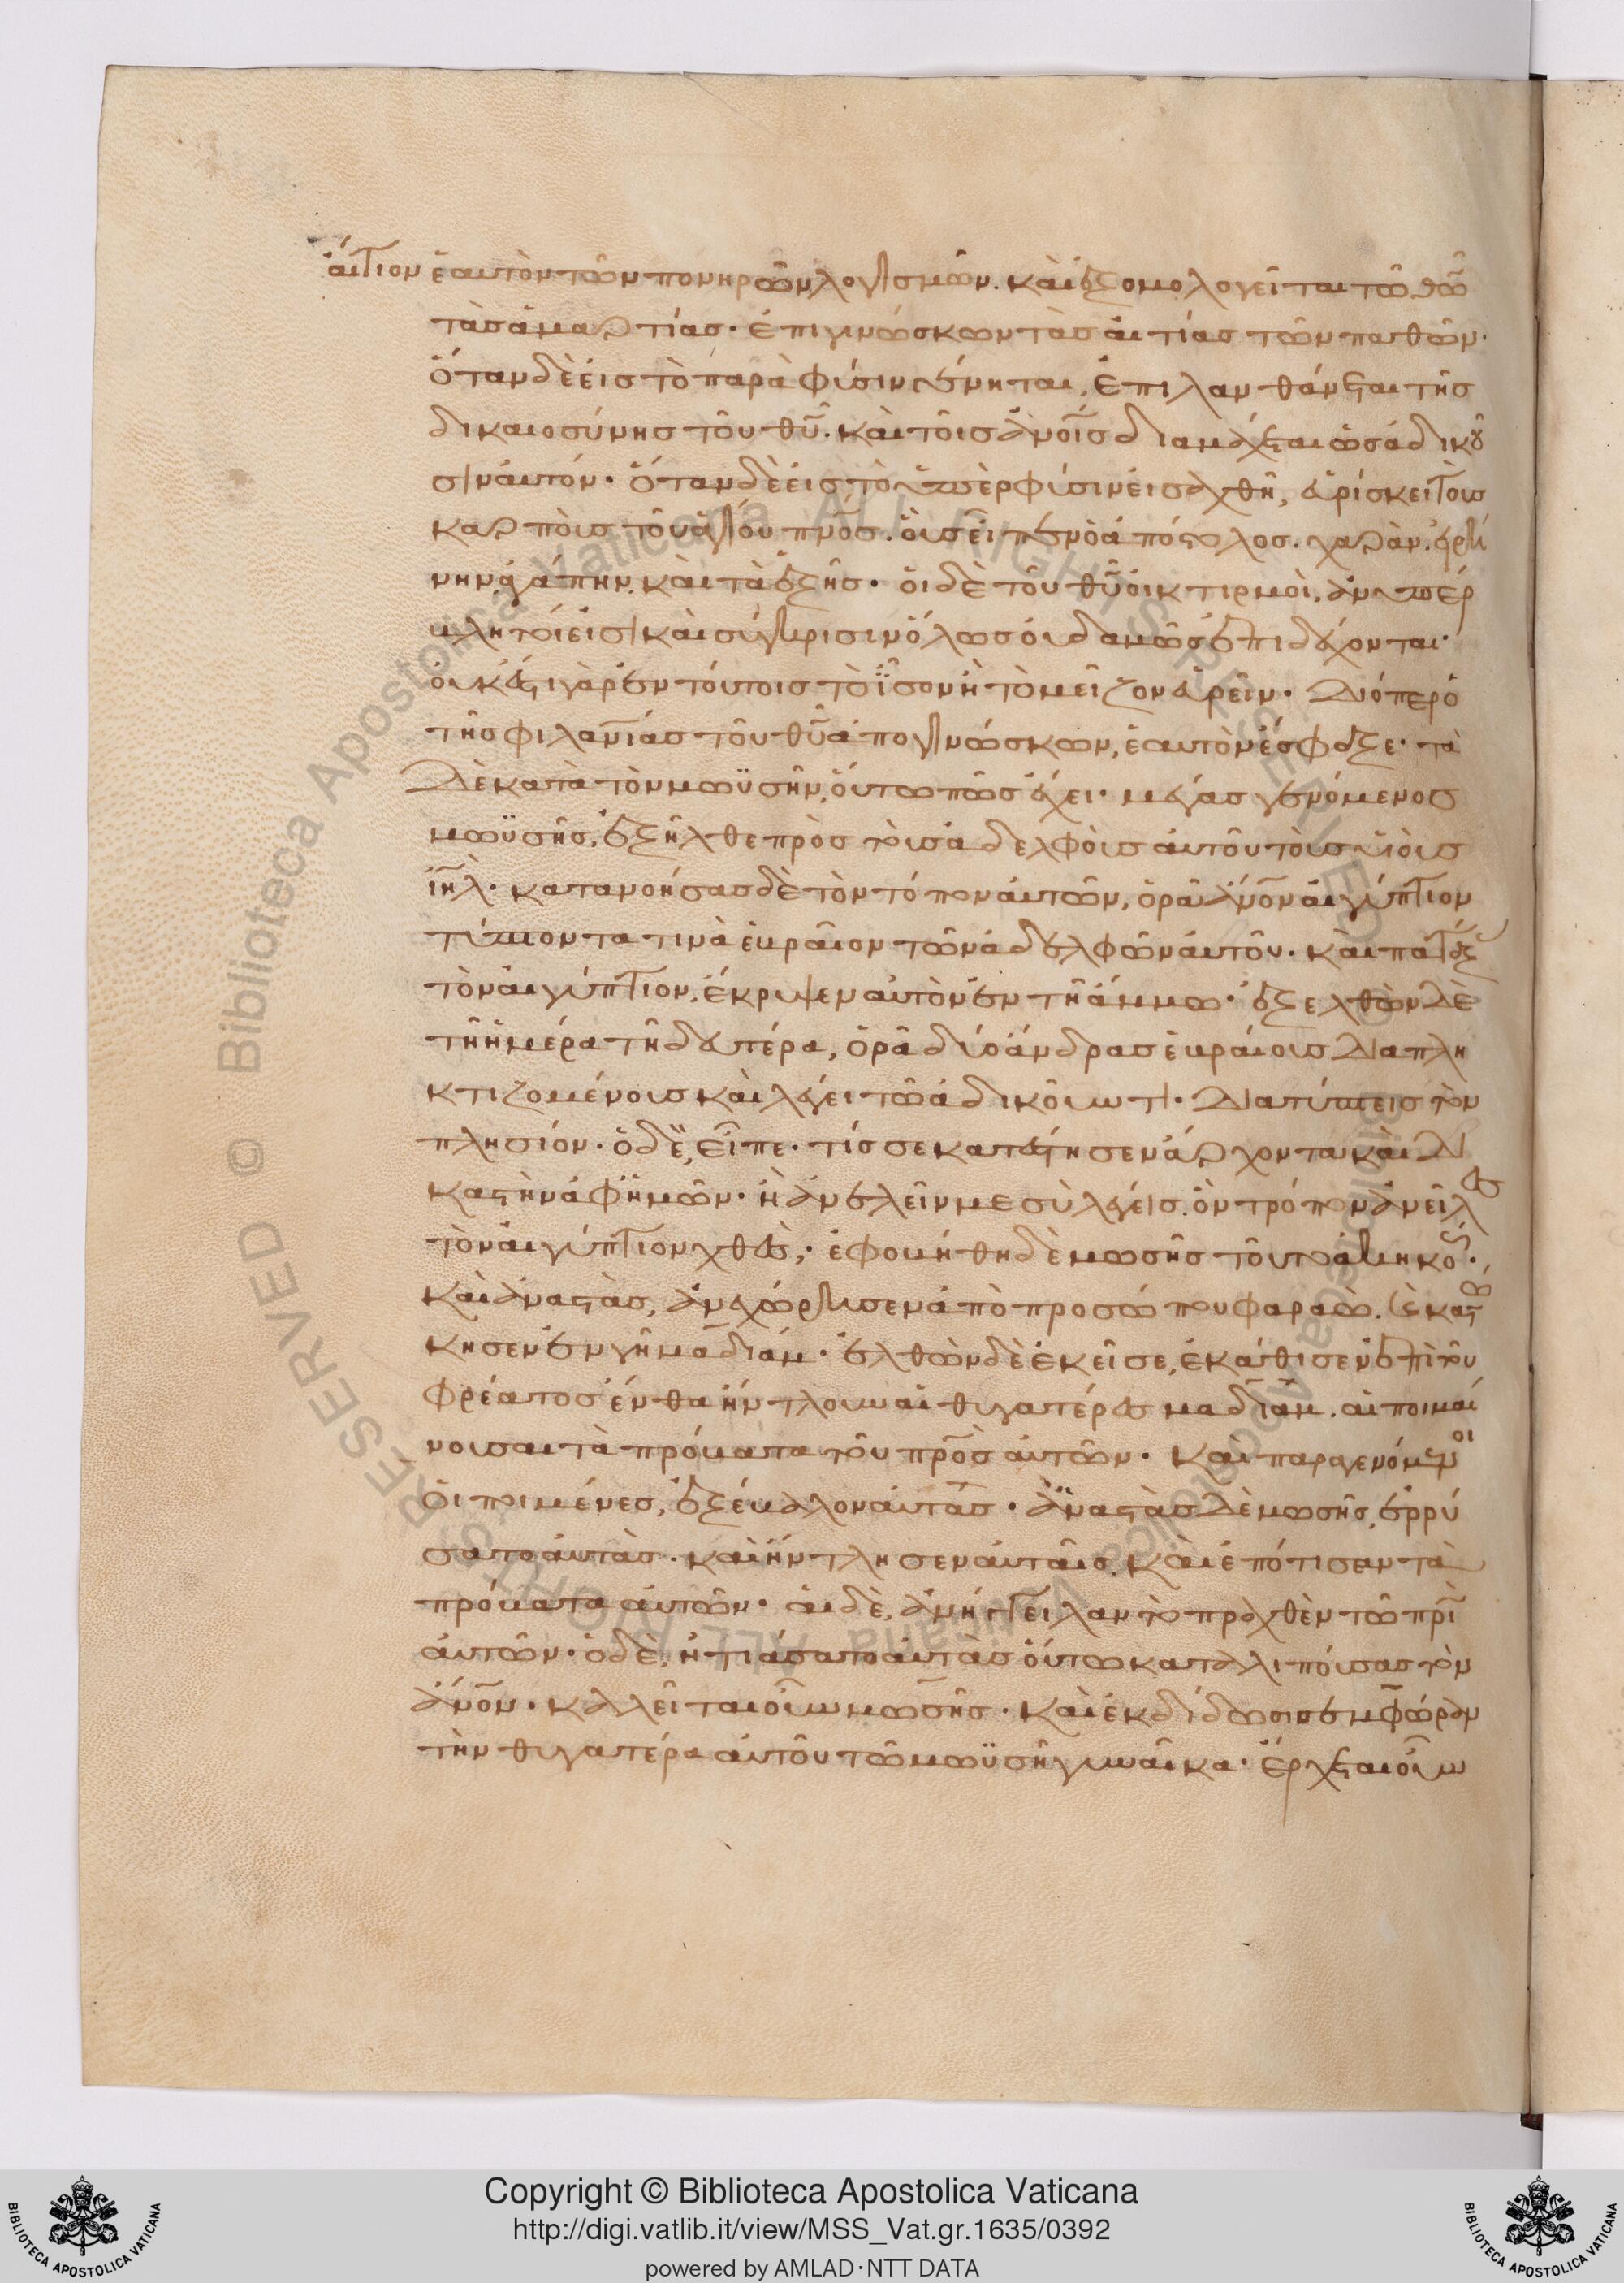 αἴτιον ἑαυτὸν τῶν πονηρῶν λογισμῶν. καὶ ἐξομολογεῖται τῶ θ̅ω̅
τὰς ἁμαρτίας· ἐπιγινώσκων τὰς αἰτίας τῶν παθῶν·
ὅταν δὲ εἰς τὸ παρὰ φύσιν γένηται, ἐπιλανθάνεται τῆς
δικαιοσύνης τοῦ θ̅υ̅. καὶ τοῖς ἀν̅οις διαμάχεται ὡς ἀδικοῦ
σιν αὐτόν· ὅταν δὲ εἰς τὸ ὑπὲρ φύσιν εἰσαχθῆ, εὑρίσκει τοὺς
καρποὺς τοῦ ἁγίου πν̅ς. οὓς εἶπεν ὁ ἀπόστολος. χαρὰν. εἰρή
νην. ἀγάπην. καὶ τὰ ἑξῆς· οἱ δὲ τοῦ θ̅υ̅ οἰκτιρμοὶ, ἀνυπέρ
βλητοί εἰσι καὶ σύγκρισιν ὅλως οὐδαμῶς ἐπιδέχονται·
οὐκ ἔστι γὰρ ἐν τούτοις τὸ ἴσον ἢ τὸ μεῖζον εὑρεῖν· Διόπερ ὁ
τῆς φιλαν̅ίας τοῦ θ̅υ̅ ἀπογινώσκων, ἑαυτὸν ἔσφαξε· τὰ
δὲ κατὰ τὸν μωϋσῆν, οὕτω πῶς ἔχει· μέγας γενόμενος
μωϋσῆς, ἐξῆλθε πρὸς τοὺς ἀδελφοὺς αὐτοῦ τοὺς υἱοὺς
ι̅η̅λ̅· κατανοήσας δὲ τὸν τόπον αὐτῶν, ὁρᾶ ἄν̅ον αἰγύπτιον
τύπτοντα τινὰ ἑβραῖον τῶν ἀδελφῶν αὐτοῦ. καὶ πατάξ
τὸν αἰγύπτιον, ἔκρυψεν αὐτὸν ἐν τῆ ἄμμω· ἐξελθὼν δὲ
τῆ ἡμέρα τῆ δευτέρα, ὁρᾶ δύο ἄνδρας ἑβραίους διαπλη
κτιζομένους καὶ λέγει τῶ ἀδικοῦντι· Διατί τύπτεις τὸν
πλησίον· ὁ δὲ, εἶπε· τίς σε κατέστησεν ἄρχοντα καὶ δι
καστὴν ἀφ' ἡμῶν· ἢ ἀνελεῖν με σὺ λέγεις. ὃν τρόπον ἀνεῖλες
τὸν αἰγύπτιον χθές; ἐφοβήθη δὲ μωσῆς τοῦτο ἀκηκοώς.
καὶ ἀναστὰς, ἀνεχώρησεν ἀπὸ προσώπου φαραὼ. καὶ κατῴ
κησεν ἐν γῆ μαδιάμ· ἐλθὼν δὲ ἐκεῖσε, ἐκάθισεν ἐπὶ τοῦ
φρέατος ἔνθα ἤντλουν αἱ θυγατέρες μαδιάμ. αἱ ποιμαί
νουσαι τὰ πρόβατα τοῦ πρ̅ς αὐτῶν· καὶ παραγενόμενοι
οἱ ποιμένες, ἐξέβαλον αὐτάς· ἀναστὰς δὲ μωσῆς, ἐρρύ
σατο αὐτὰς. καὶ ἤντλησεν αὐταῖς. καὶ ἐπότισαν τὰ
πρόβατα αὐτῶν· αἱ δὲ, ἀνήγγειλαν τὸ πραχθὲν τῶ πρ̅ι
αὐτῶν· ὁ δὲ, ἠτιάσατο αὐτὰς οὕτω καταλιπούσας τὸν
ἄν̅ον. καλεῖται οὖν μωσῆς. καὶ ἐκδίδωσι σεμφώραν
τὴν θυγατέρα αὐτοῦ τῶ μωϋσῆ γυναῖκα· ἔρχεται οὖν